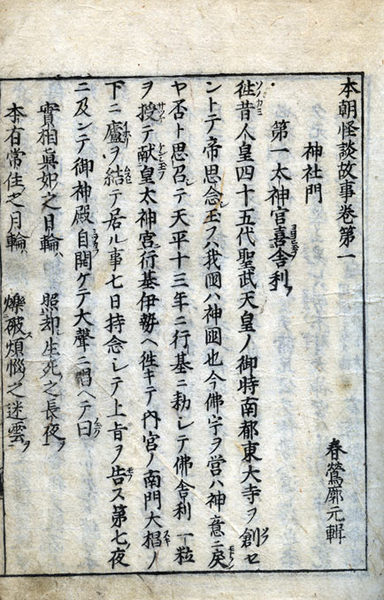 本朝怪談故事巻第一
春鶯廓元輯
神社門
第一太神宮喜舎利ヲ
往昔人皇四十五代聖武天皇ノ御時南都東大寺ヲ創セ
ントテ帝思念玉フハ我國ハ神國也今佛宇ヲ營ハ神意ニ戾
ヤ否ト思召レテ天平十三年ニ行基ニ勅シテ佛舎利一粒
ヲ授テ献皇太神宮行基伊勢ヘ往キテ內宮ノ南門大椙ノ
下ニ廬ヲ結テ居ル事七日持念シテ上旨ヲ告ス第七夜
ニ及ンテ御神殿自開ケテ大聲ニ唱ヘテ曰
實相眞如之日輪ハ 照却生死之長夜ヲ
本有常住之月輪ハ 爍破煩惱之迷雲ヲ